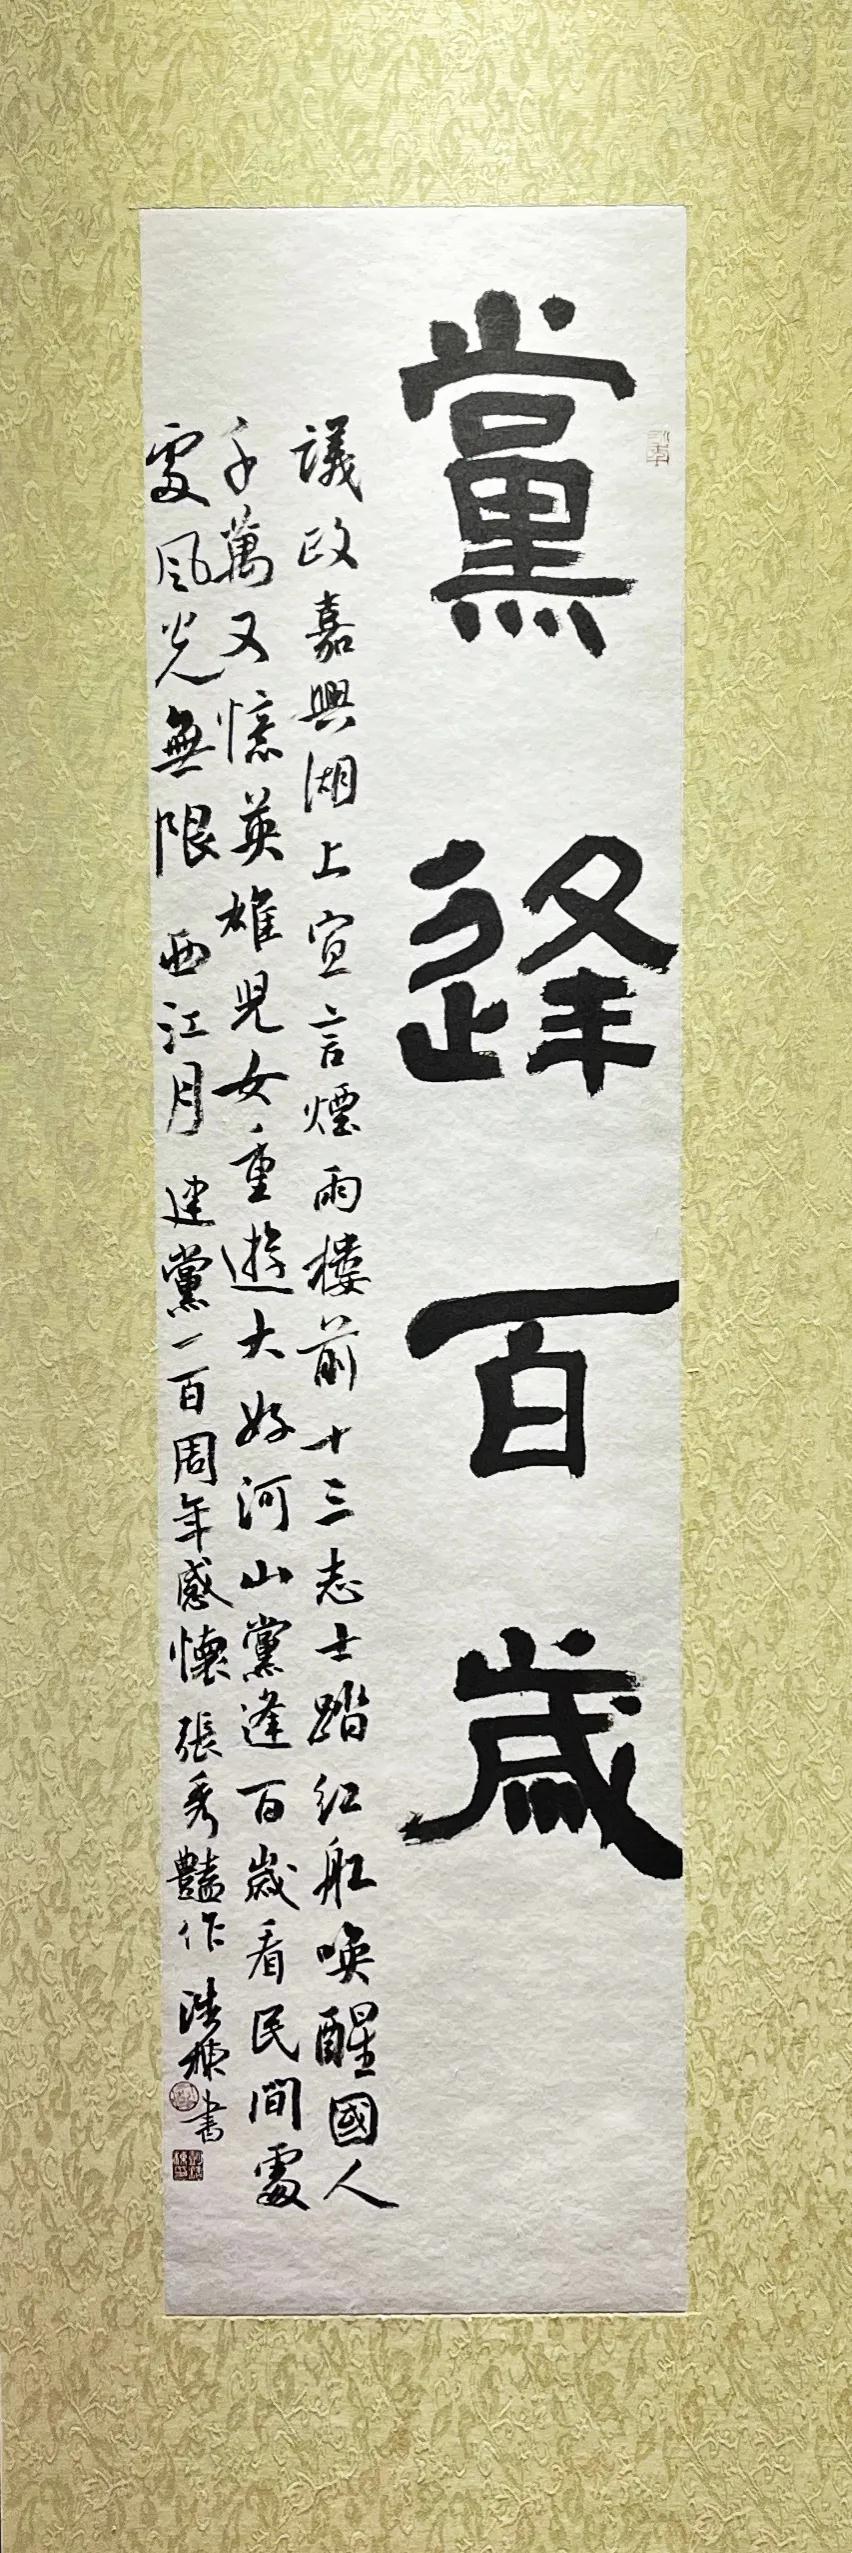 黨逢百歲
議政嘉興湖上宣言煙雨樓前十三志士踏红船唤醒國人
千萬又憶英雄児女重遊大好河山黨逢百歲看民間處
處風光無限 西江月 建黨一百周年感懷 張秀豔作 書